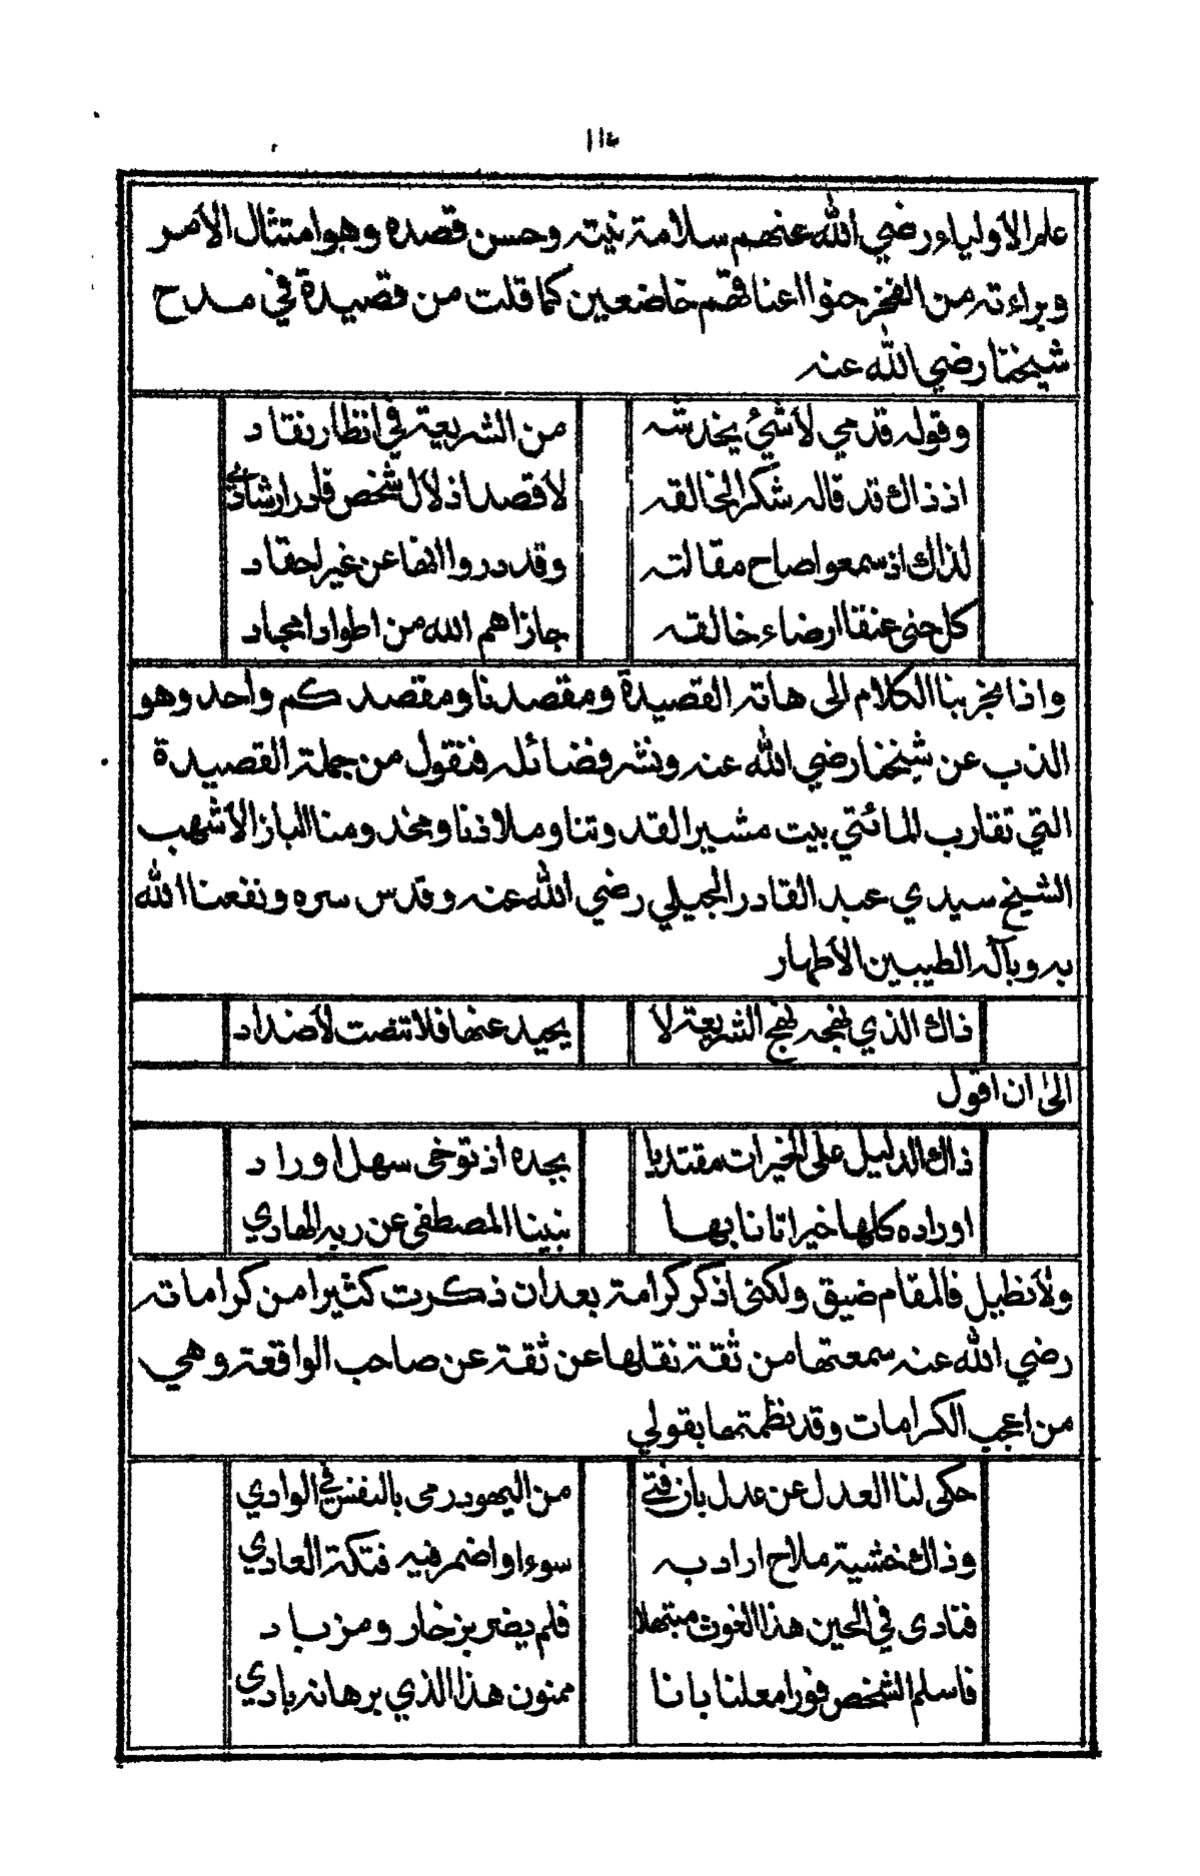 ١١٤
علم الاولياء رضي الله عنهم سلامة نيته وحسن قصده وهو امتثال الامر
وبراءته من الفخر حنوا اعناقهم خاضعين كما قلت من قصيدة في مدح
شيخنا رضي الله عنه
وقوله قدمي لا شيئ يخدشه من الشريعة في انظار نقاد
اذ ذاك قد قاله شكرا لخالقه لا قصد اذلال شخص قلد ارشادي
لذاك اذ سمعوا صاح مقالته وقد دروا انها عن غير احقاد
كل حنى عنقا ارضاء خالقه جازاهم الله من اطواد امجاد
واذا بنا الكلام الى هاته القصيدة ومقصدنا ومقصد كم واحد وهو
الذب عن شيخنا رضي الله عنه ونشر فضائله فنقول من جملة القصيدة
التي تقارب المائتي بيت مشيرا لقدوتنا وملاذنا ومخدومنا الباز الاشهب
الشيخ سيدي عبد القادر الجيلي رضي الله عنه وقدس سره ونفعنا الله
به وبآله الطيبين الاطهار
ذاك الذي نهجه نهج الشريعة لا يحيد عنها فلا تنصت لاضداد
الى ان اقول
ذاك الدليل على الخيرات مقتديا بجده اذ توخى سهل اوراد
اوراده كلها خير اتانا بها نبينا المصطفى عن ربه الهادي
ولا نطيل فالمقام ضيق ولكنى اذكر كرامة بعد ان ذكرت كثيرا من كراماته
رضي الله عنه سمعتها من ثقة نقلها عن ثقة عن صاحب الواقعة وهي
من اعجب الكرامات وقد نظمتها بقولي
حكى لنا العدل عن عدل بان فتى من اليهود رمى بالنفس في الوادي
وذاك خشية ملاح اراد به سوءا او اضمر فيه فتكة العادي
فنادى في الحين هذا الغوث مبتهلا فلم يضر بزخار ومزباد
فاسلم الشخص فورا معلنا بانا ممنون هذا الذي برهانه بادي